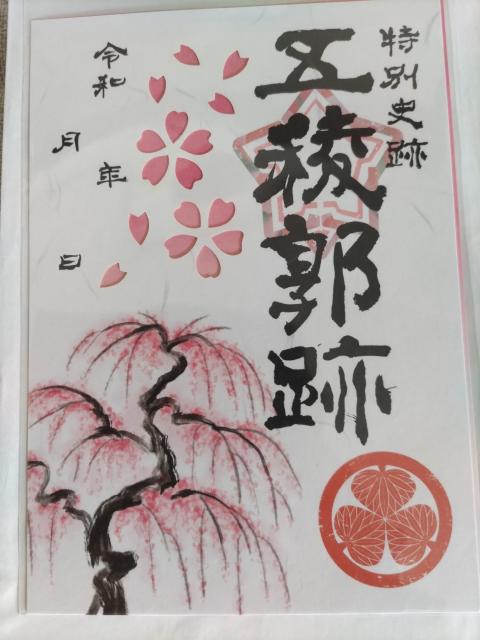 特別史跡
五稜郭跡
令和　年
月　日